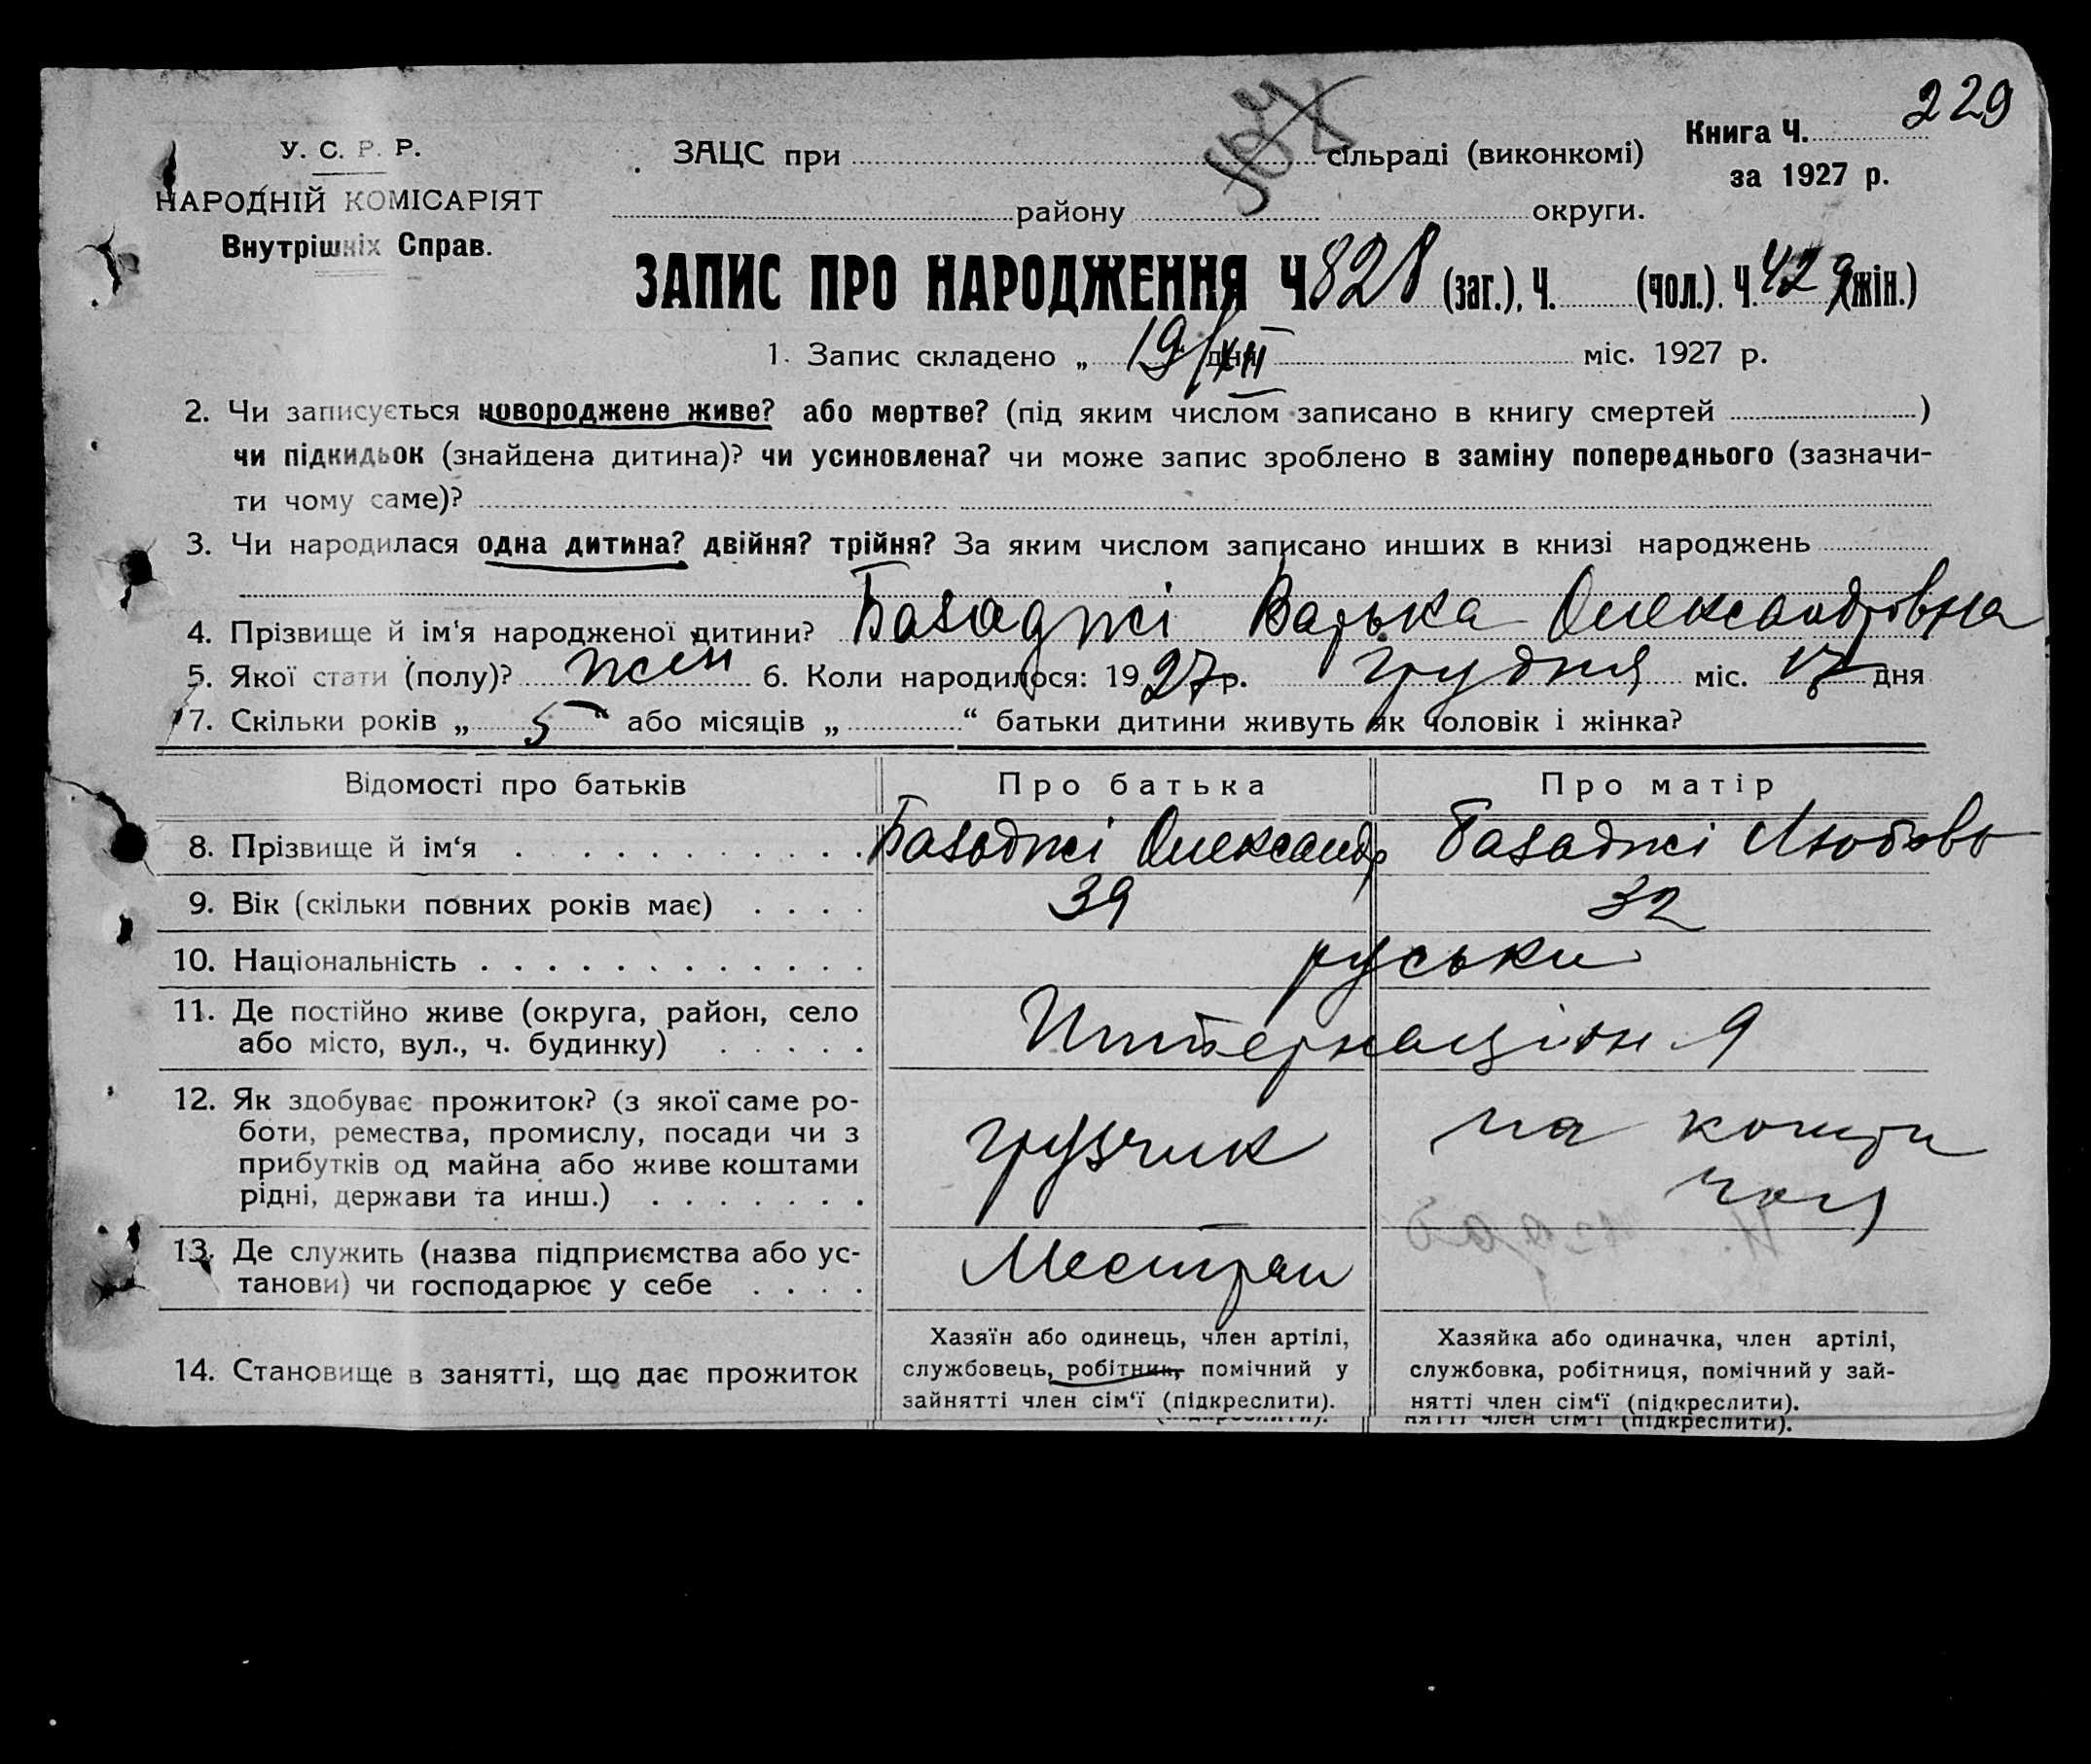 229
У. С. Р. Р.
НАРОДНІЙ КОМІСАРІЯТ
Внутрішніх Справ.
ЗАЦС при сільраді (виконкомі)
району округи.
Книга Ч.
за 1927 р.
ЗАПИС ПРО НАРОДЖЕННЯ Ч. 828 (заг.), Ч. (чол.). Ч. 429 (жін.)
1. Запис складено „ 19/XII дня міс. 1927 р.
2. Чи записується новороджене живе? або мертве? (під яким числом записано в книгу смертей )
чи підкидьок (знайдена дитина)? чи усиновлена? чи може запис зроблено в заміну попереднього (зазначи-
ти чому саме)?
3. Чи народилася одна дитина? двійня? трійня? За яким числом записано инших в книзі народжень
4. Прізвище й ім'я народженої дитини? Базаджі Варька Олександровна
5. Якої стати (полу)? жен 6. Коли народилося: 1927 р. грудня міс. 17 дня
7. Скільки років „ 5 “ або місяців „ “ батьки дитини живуть як чоловік і жінка?
Відомості про батьків Про батька Про матір
8. Прізвище й ім‘я Базаджі Олександр Базаджі Любовь
9. Вік (скільки повних років має) 39 32
10. Національність руськи
11. Де постійно живе (округа, район, село
або місто, вул., ч. будинку) Интернаціон 9
12. Як здобуває прожиток? (з якої саме ро-
боти, ремества, промислу, посади чи з
прибутків од майна або живе коштами
рідні, держави та инш.)
грузчик
на кошти
чол
13. Де служить (назва підприємства або ус-
танови) чи господарює у себе
Местран
14. Становище в занятті, що дає прожиток
Хазяїн або одинець, член артілі,
службовець, робітник, помічний у
зайнятті член сім‘ї (підкреслити).
Хазяйка або одиначка, член артілі,
службовка, робітниця, помічний у зай-
нятті член сім‘ї (підкреслити).
нятті член сім‘ї (підкреслити).